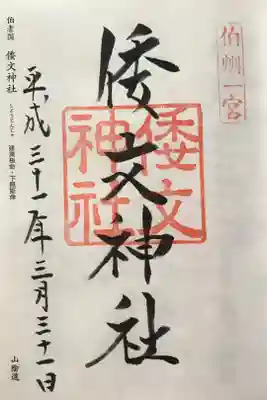 伯州一宮
倭文神社
倭文
神社
平成三十一年三月三十一日
伯耆国 倭文神社
しとりじんじゃ
建葉槌命・下照姫命
山陰道